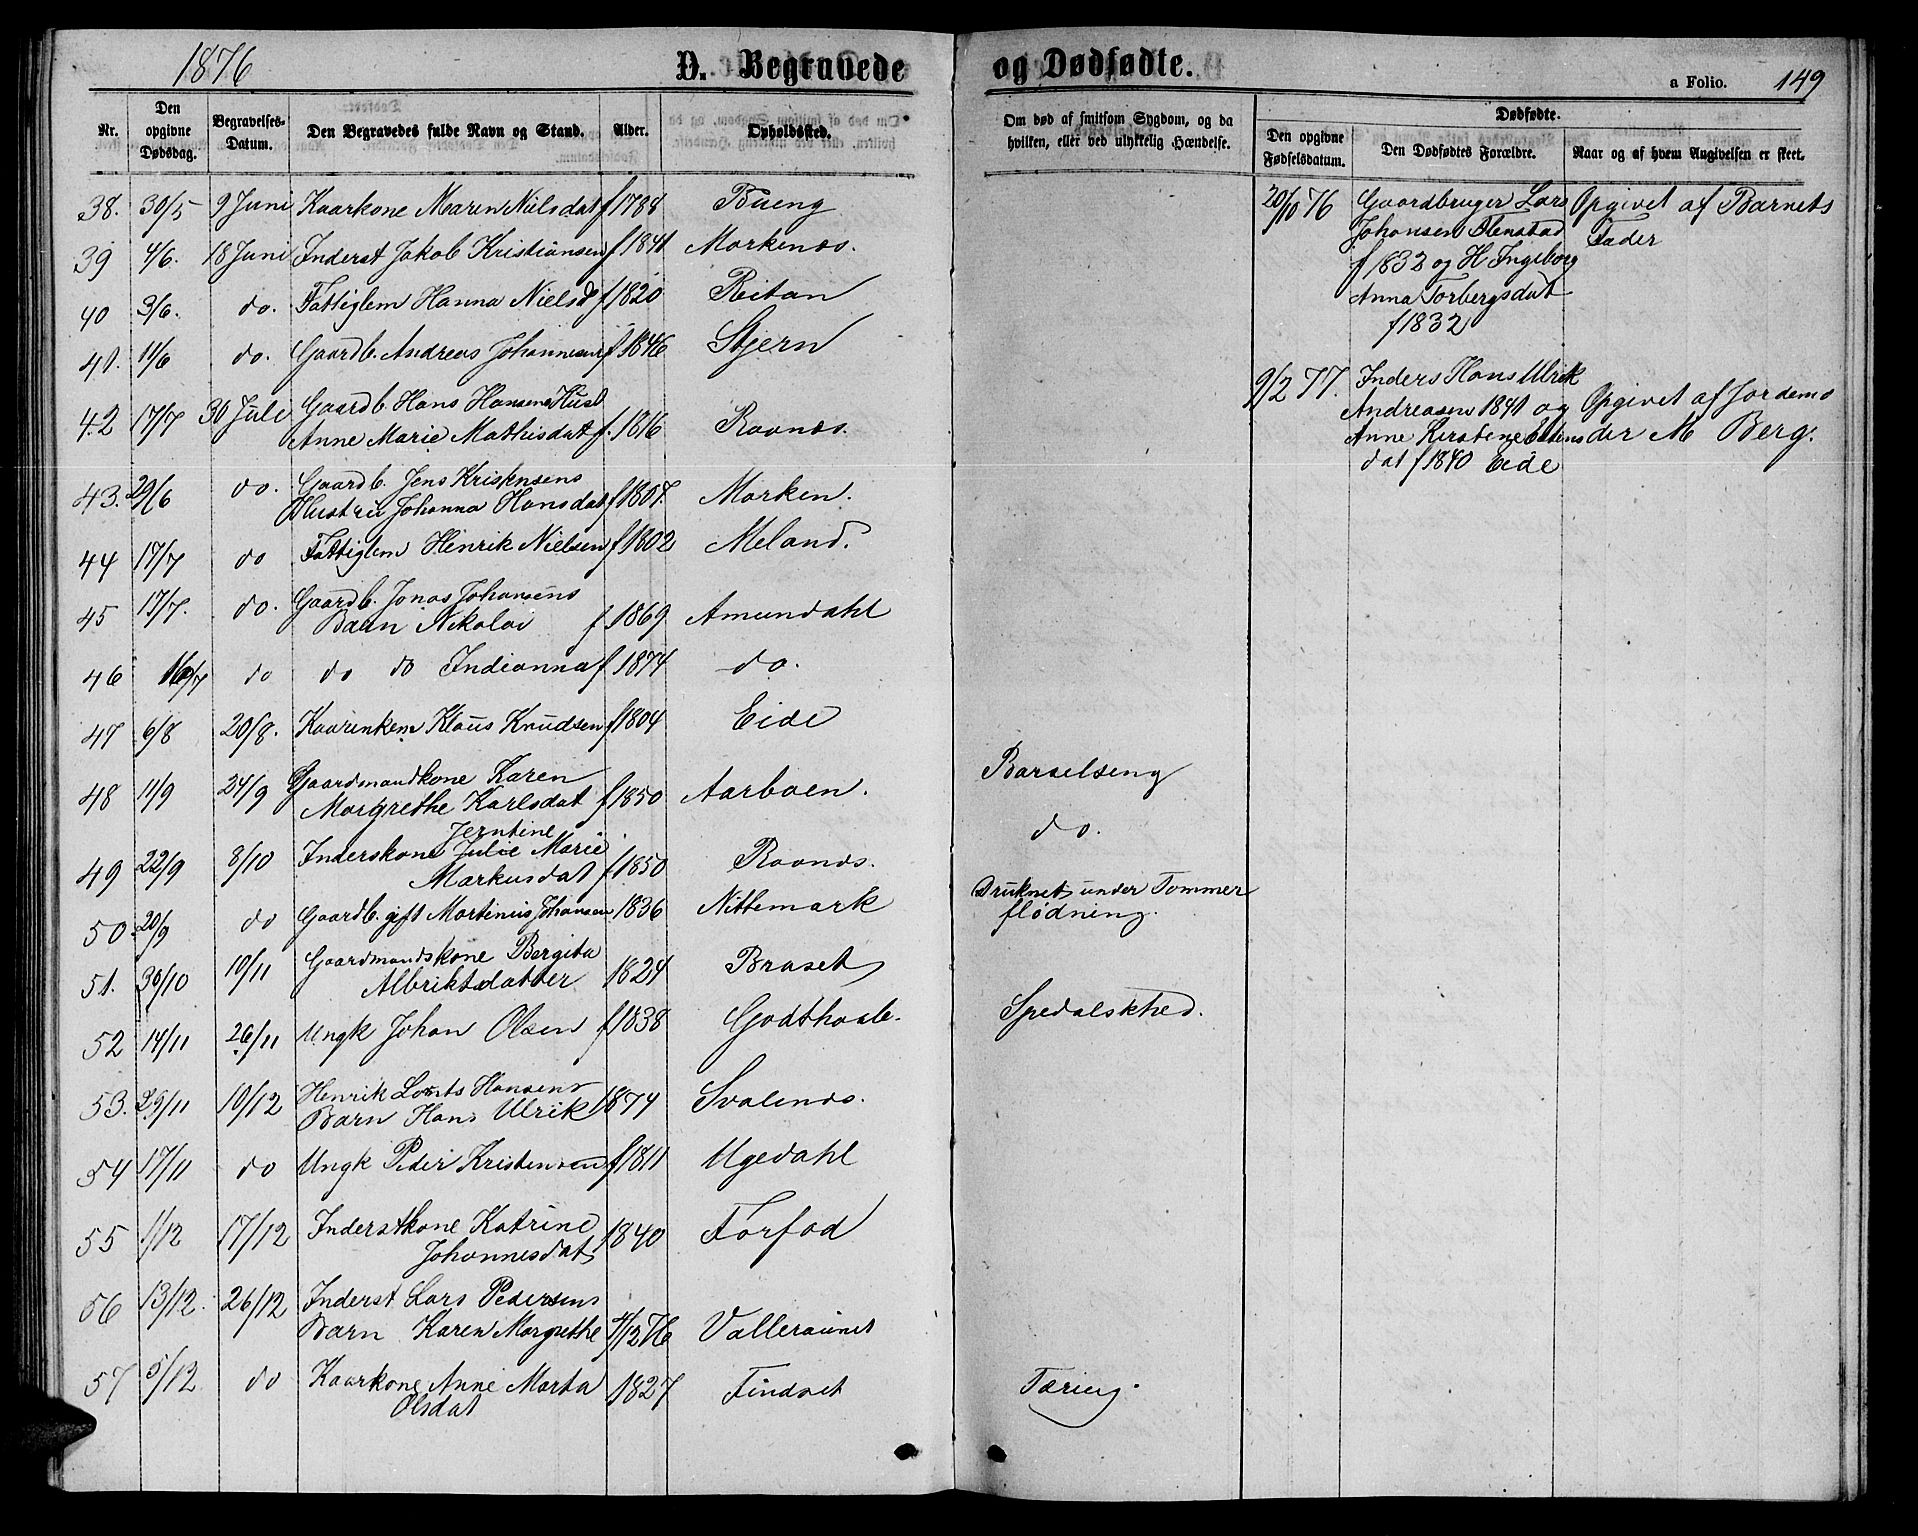 1876
D. Begravede og Dødfødte.
a Folio. 149
Nr. Den opgivne Dødsdag. Begravelses-Datum. Den Begravedes fulde Navn og Stand. Alder. Opholdssted.
Om død af smitsom Sygdom, og da hvilken, eller ved ulykkelig Hændelse.
Dødfødte.
Den opgivne Fødselsdatum. Den Dødfødtes Forældre. Naar og af hvem Angivelsen er skeet.
38. 30/5 9 Juni Kaarkone Maren Nielsdat f 1788 Bueng
39 4/6. 18 Juni Inderst Jakob Kristiansen f 1841 Morkenæs.
40 3/6. do. Fattiglem Hanna Nielsd f 1820 Reitan
41. 11/6 do. Gaardb. Andreas Johannesen f 1846 Stjern
42 17/7 30 Juli Gaardb. Hans Hansens Hust
Anne Marie Mathisdat f. 1816 Ravnæs.
43. 29/6 do. Gaardb. Jens Kristensens
Hustru Johanna Hansdat f 1807. Morken.
44 17/7 do Fattiglem Henrik Nielsen f 1802 Meland.
45 17/7. do. Gaardb. Jonas Johansens
Barn Nikolai f 1869 Amundahl
46 16/7 do do do Indianna f 1874 do.
47 6/8 20/8. Kaarenkem Klaus Knudsen f 1804 Eide
48 11/9 24/9 Gaardmandkone Karen
Margrethe Karlsdat f 1850 Aarboen. Barselseng
Jerntine
49 22/9 8/10 Inderskone Julie Marie
Markusdat f 1850 Ravnæs. do.
50. 20/9 do Gaardb. gift Martinus Johansen 1836 Nittemark Druknet under Tømmer
flødning.
51. 30/10 10/11 Gaardmandskone Bergita
Albriktsdatter 1824 Braset
52 14/11 26/11 Ungk Johan Olsen f 1838 Godthaab. Spedalskhed.
53. 29/11 10/12 Henrik Lornts Hansens
Barn Hans Ulrik 1874 Svalenæs.
54 17/11 do Ungk Peder Kristensen f 1811 Ugedahl
55 1/12 17/12 Inderstkone Katrine
Johannesdat 1840 Forfod
56 13/12. 26/12 Inderst Lars Pedersens
Barn Karen Margrethe 4/12 76 Valleraunet
57 5/12 do Kaarkone Anne Marta
Olsdat 1827 Findset Tæring.
20/10 76 Gaardbruger Lars Opgivet af Barnets
Johansen Flenstad Fader
f 1832 og H Ingeborg
Anna Torbergsdat
f 1832
9/2 77. Inders Hans Ulrik
Andreasen 1841 og Opgivet af Jordemo
Anne Kerstene der M Berg.
dat f 1840 Eide